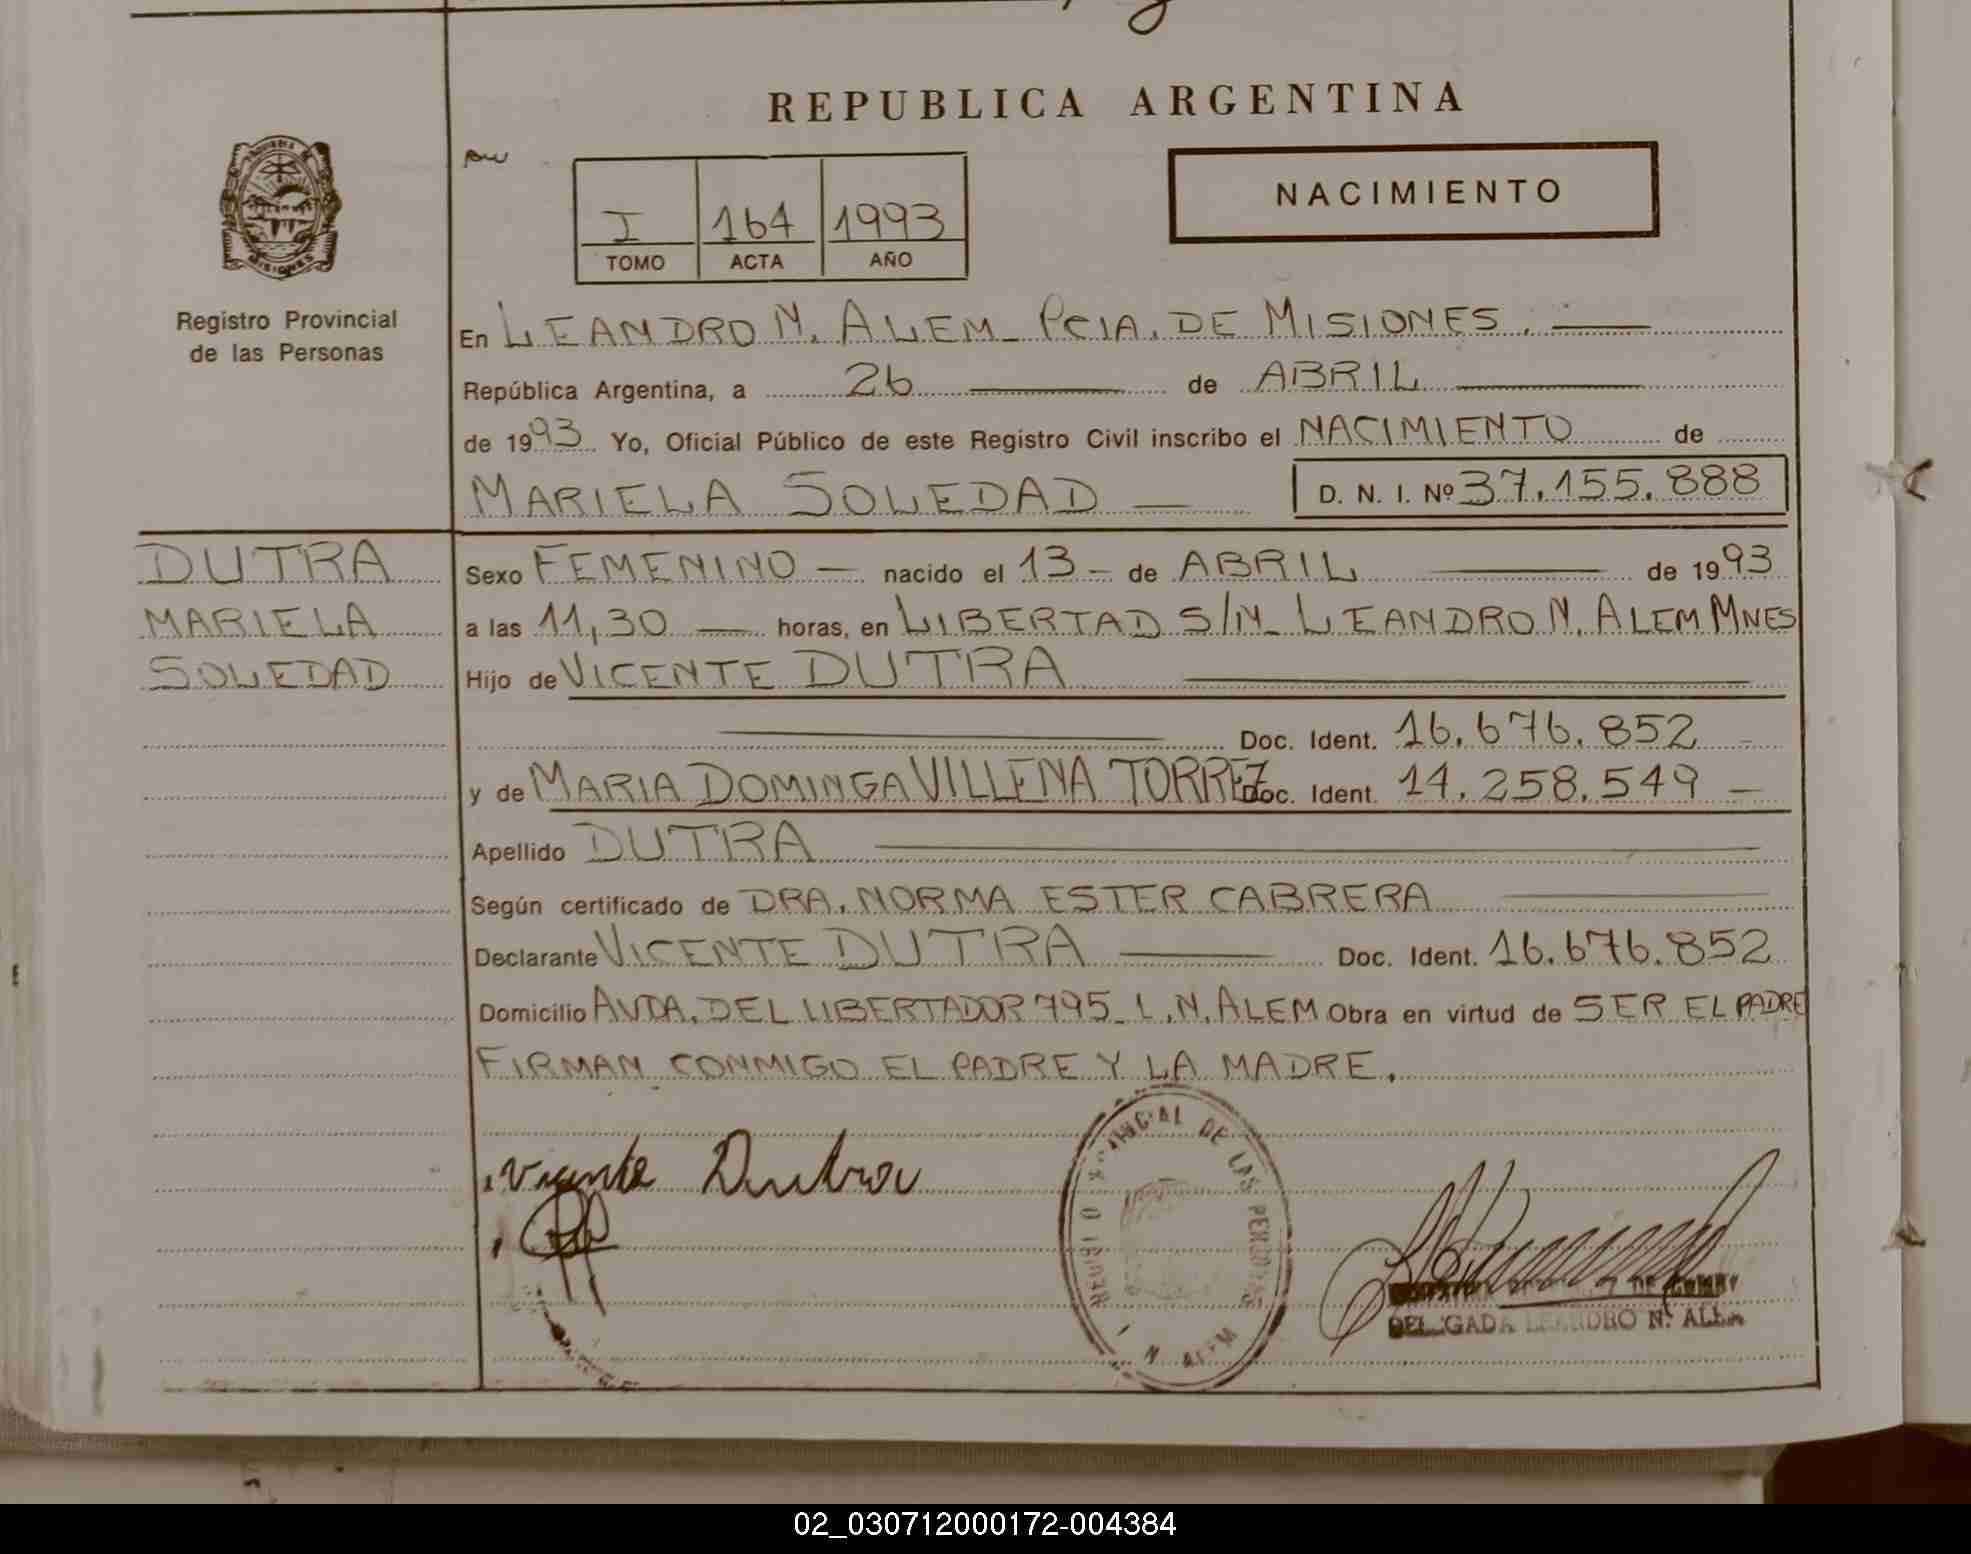 REPUBLICA ARGENTINA
NACIMIENTO
I 164 1993
TOMO ACTA AÑO
MISIONES
Registro Provincial
de las Personas
En LEANDRO N. ALEM_ PCIA. DE MISIONES.
República Argentina, a 26 de ABRIL
de 1993 Yo, Oficial Público de este Registro Civil inscribo el NACIMIENTO de
MARIELA SOLEDAD — D. N. I. Nº 37.155.888
DUTRA
MARIELA
SOLEDAD
Sexo FEMENINO — nacido el 13 - de ABRIL — de 1993
a las 11,30 — horas, en LIBERTAD S/N_ LEANDRO N. ALEM MNES
Hijo de VICENTE DUTRA —
— Doc. Ident. 16.676.852 -
y de MARIA DOMINGA VILLENA TORREZ Doc. Ident. 14.258.549 —
Apellido DUTRA —
Según certificado de DRA. NORMA ESTER CABRERA —
Declarante VICENTE DUTRA — Doc. Ident. 16.676.852
Domicilio AVDA. DEL LIBERTADOR 795_ L.N. ALEM Obra en virtud de SER EL PADRE
FIRMAN CONMIGO EL PADRE Y LA MADRE.
Vicente Dutra
DE LAS PERSONAS
N ALEM
DELEGADA LEANDRO N. ALEM
02_030712000172-004384